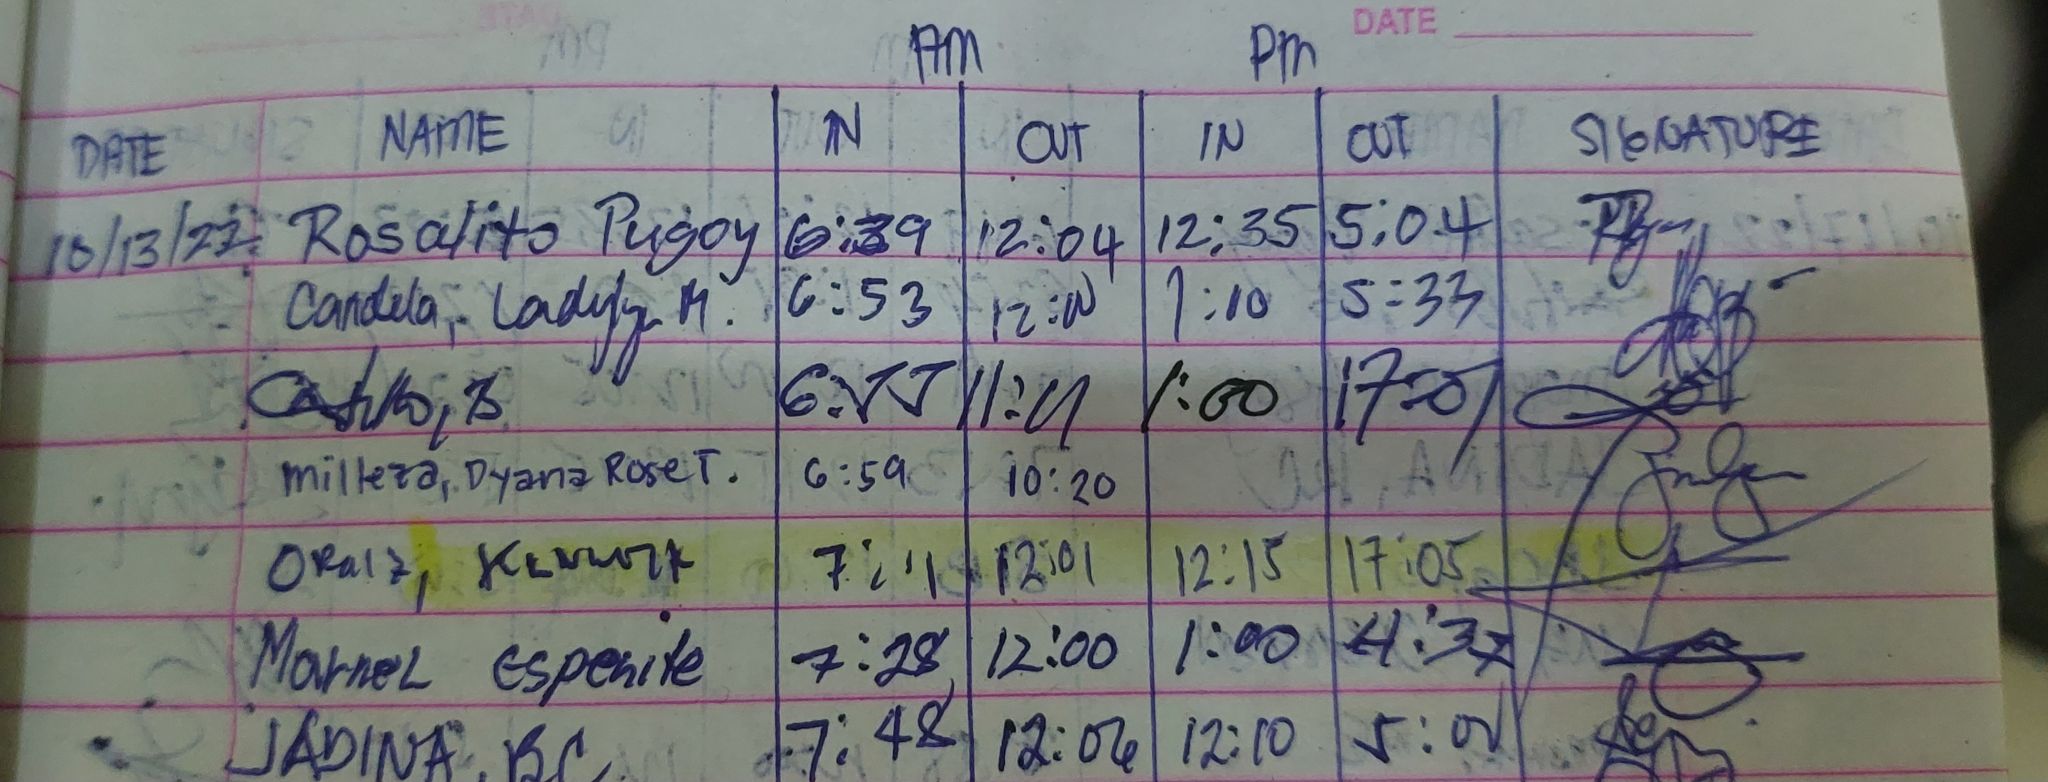 DATE
AM PM
DATE NAME IN OUT IN OUT SIGNATURE
10/13/22 Rosalito Pugoy 6:39 12:04 12:35 5:04
Candela, Ladyly M. 6:53 1:10 5:33
6:55 1:00
Milleza, Dyana Rose T. 6:59 10:20
Oraiz, 7:11 12:01 12:15 17:05
Marnel Espenite 7:28 12:00 1:00 4:37
JADINA, BC. 7:48 12:06 12:10